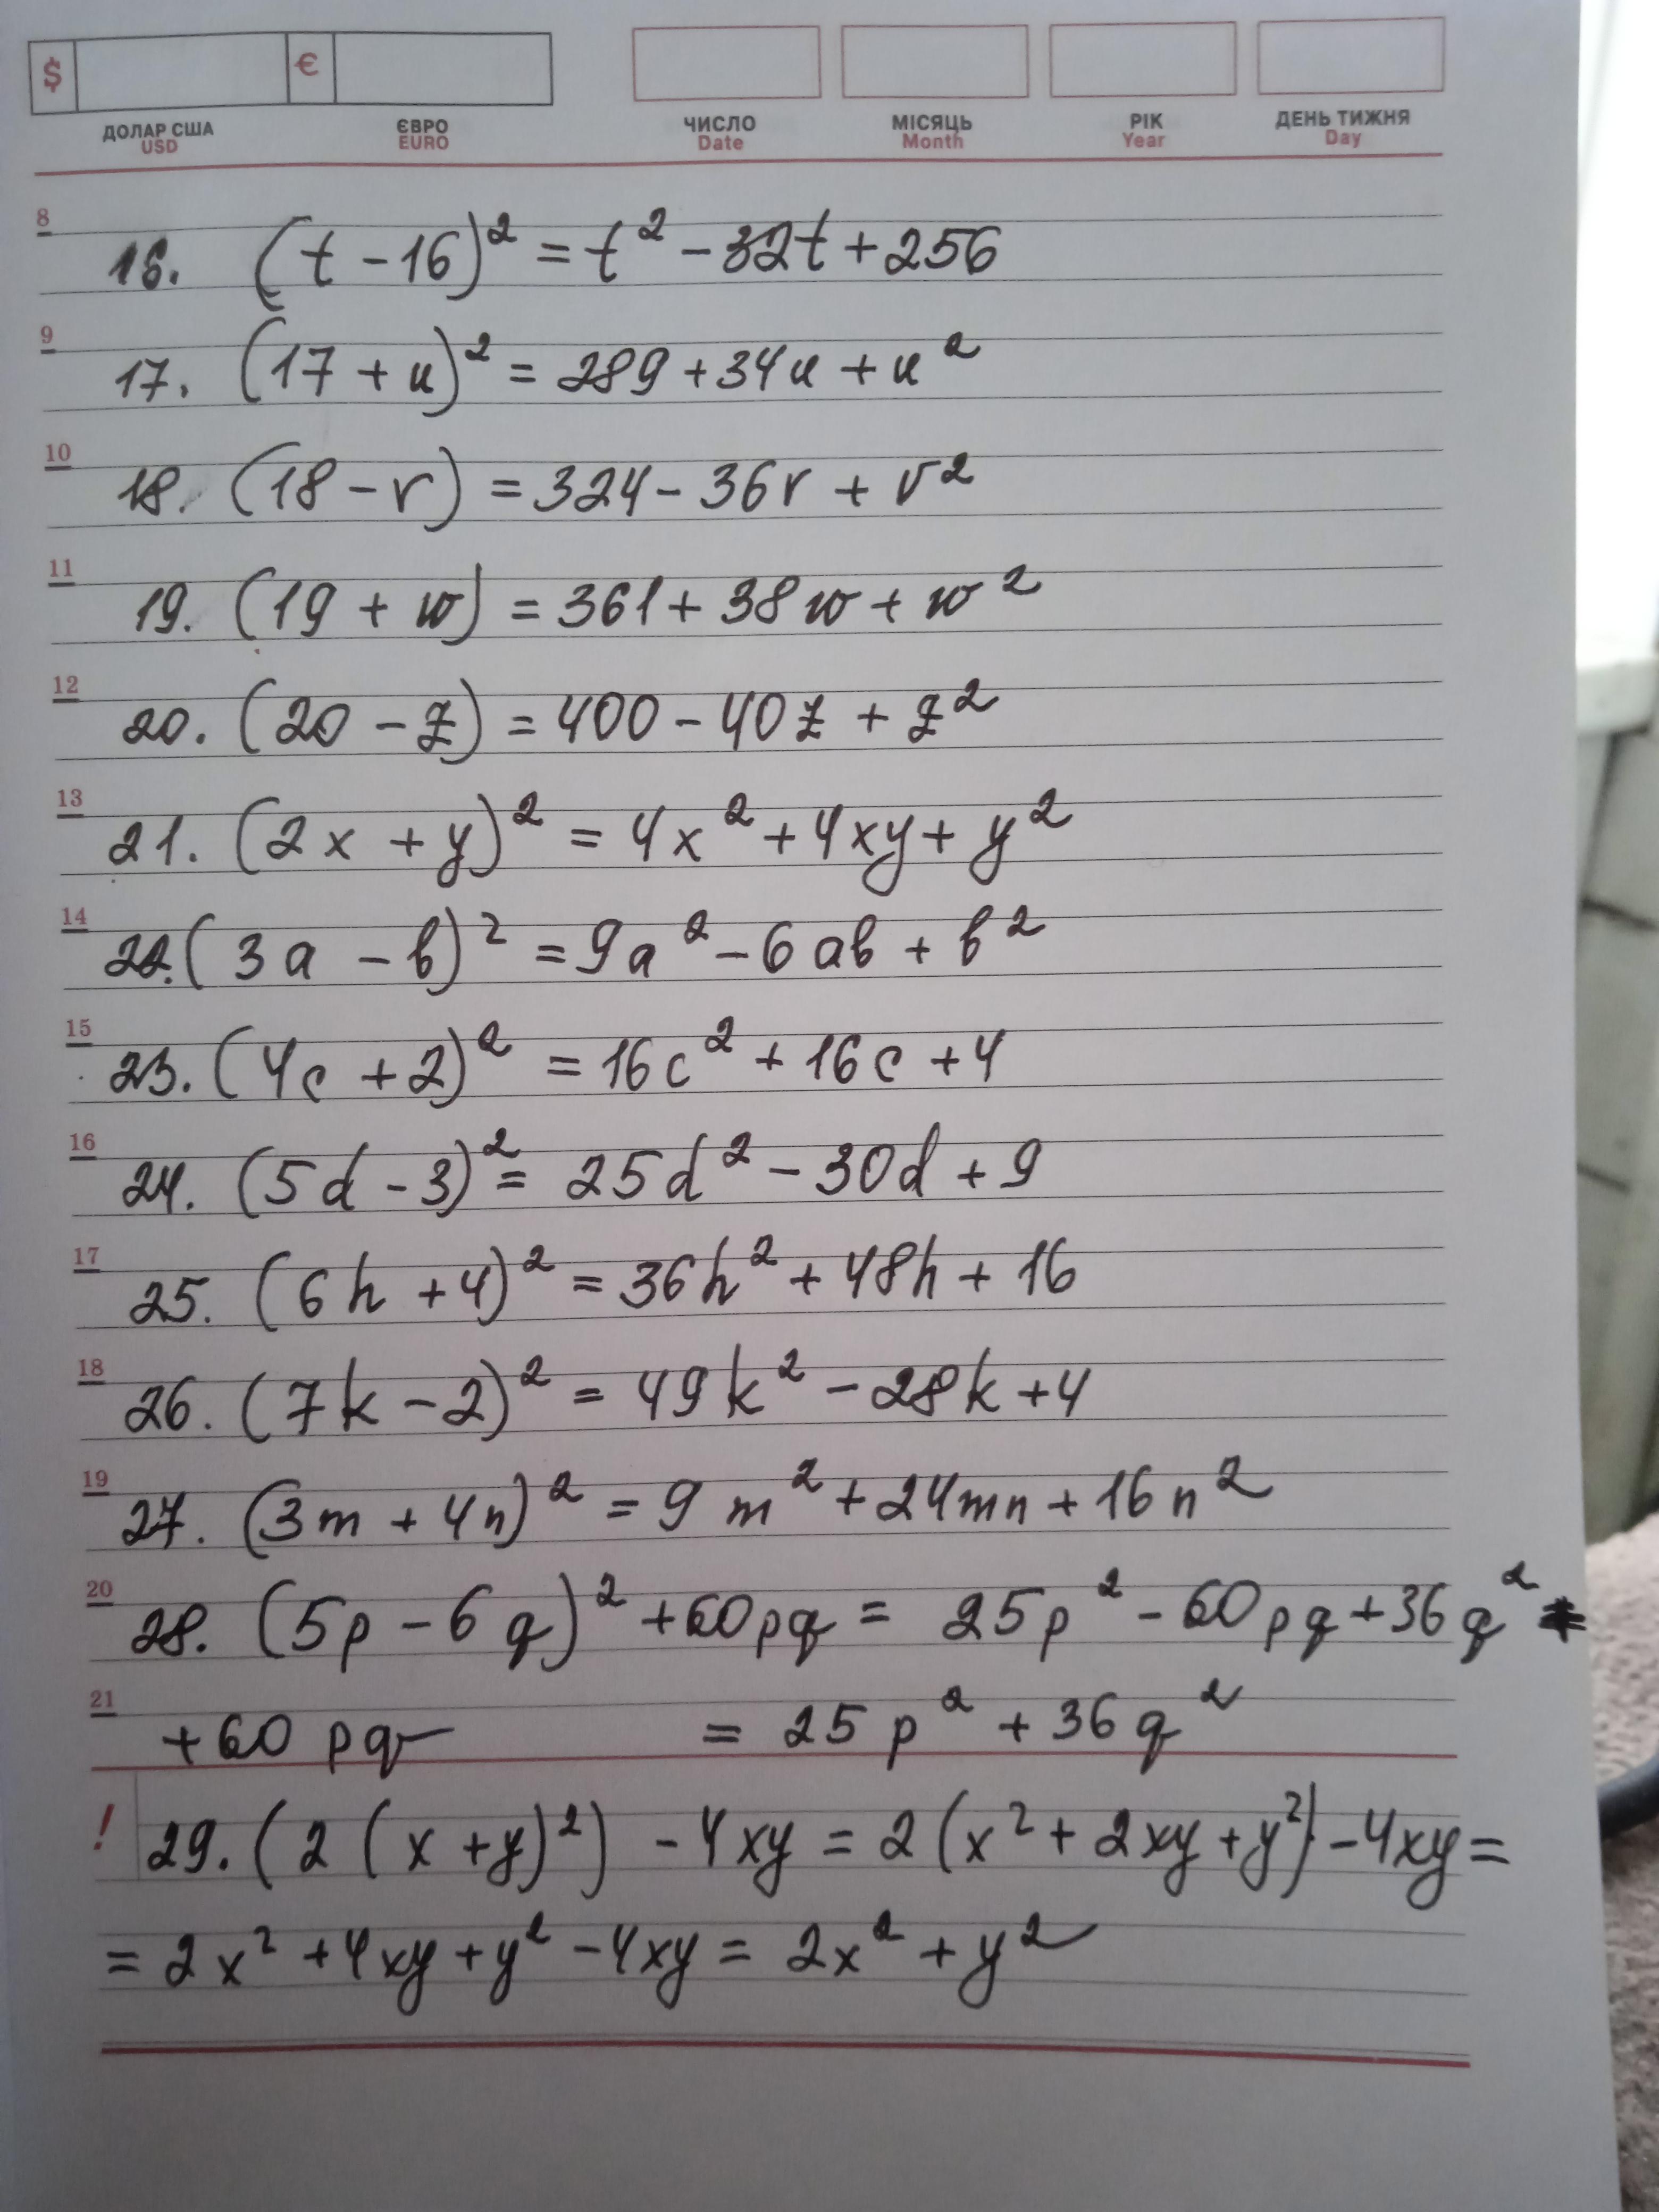 $ €
ДОЛАР США ЄВРО ЧИСЛО МІСЯЦЬ РІК ДЕНЬ ТИЖНЯ
USD EURO Date Month Year Day
8 16. (t - 16)² = t² - 32t + 256
9 17. (17 + u)² = 289 + 34u + u²
10 18. (18 - v) = 324 - 36v + v²
11 19. (19 + w) = 361 + 38w + w²
12 20. (20 - z) = 400 - 40z + z²
13 21. (2x + y)² = 4x² + 4xy + y²
14 22. (3a - b)² = 9a² - 6ab + b²
15 23. (4c + 2)² = 16c² + 16c + 4
16 24. (5d - 3)² = 25d² - 30d + 9
17 25. (6h + 4)² = 36h² + 48h + 16
18 26. (7k - 2)² = 49k² - 28k + 4
19 27. (3m + 4n)² = 9m² + 24mn + 16n²
20 28. (5p - 6q)² + 60pq = 25p² - 60pq + 36q²
21 + 60pq = 25p² + 36q²
! 29. (2(x + y)²) - 4xy = 2(x² + 2xy + y²) - 4xy =
= 2x² + 4xy + y² - 4xy = 2x² + y²